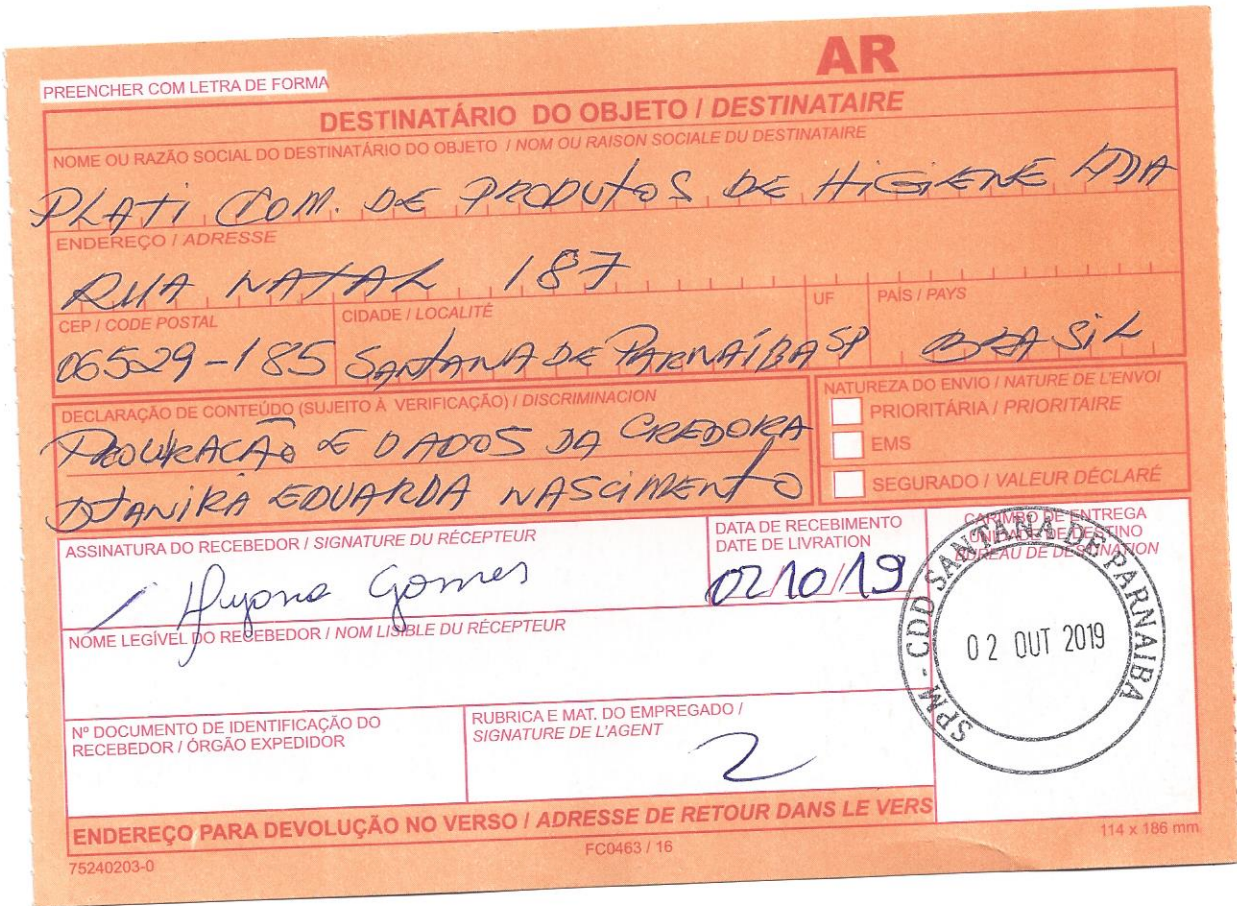 AR
PREENCHER COM LETRA DE FORMA
DESTINATÁRIO DO OBJETO / DESTINATAIRE
NOME OU RAZÃO SOCIAL DO DESTINATÁRIO DO OBJETO / NOM OU RAISON SOCIALE DU DESTINATAIRE
PLATI COM. DE PRODUTOS DE HIGIENE LTDA
ENDEREÇO / ADRESSE
RUA NATAL 187
CEP / CODE POSTAL CIDADE / LOCALITÉ UF PAÍS / PAYS
06529-185 SANTANA DE PARNAÍBA SP BRASIL
DECLARAÇÃO DE CONTEÚDO (SUJEITO À VERIFICAÇÃO) / DISCRIMINACION
PROCURAÇÃO E DADOS DA CREDORA
DJANIRA EDUARDA NASCIMENTO
NATUREZA DO ENVIO / NATURE DE L'ENVOI
PRIORITÁRIA / PRIORITAIRE
EMS
SEGURADO / VALEUR DÉCLARÉ
ASSINATURA DO RECEBEDOR / SIGNATURE DU RÉCEPTEUR
Gomes
DATA DE RECEBIMENTO
DATE DE LIVRATION
02/10/19
CARIMBO DE ENTREGA
UNIDADE DE DESTINO
BUREAU DE DESTINATION
SPM - CDD SANTANA DE PARNAIBA
02 OUT 2019
NOME LEGÍVEL DO RECEBEDOR / NOM LISIBLE DU RÉCEPTEUR
Nº DOCUMENTO DE IDENTIFICAÇÃO DO
RECEBEDOR / ÓRGÃO EXPEDIDOR
RUBRICA E MAT. DO EMPREGADO /
SIGNATURE DE L'AGENT
ENDEREÇO PARA DEVOLUÇÃO NO VERSO / ADRESSE DE RETOUR DANS LE VERS
75240203-0
FC0463 / 16
114 x 186 mm